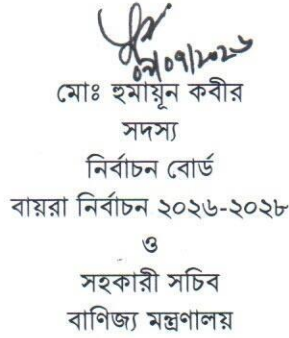 ০৭/০৭/২০২৬
মোঃ হুমায়ূন কবীর
সদস্য
নির্বাচন বোর্ড
বায়রা নির্বাচন ২০২৬-২০২৮
ও
সহকারী সচিব
বাণিজ্য মন্ত্রণালয়